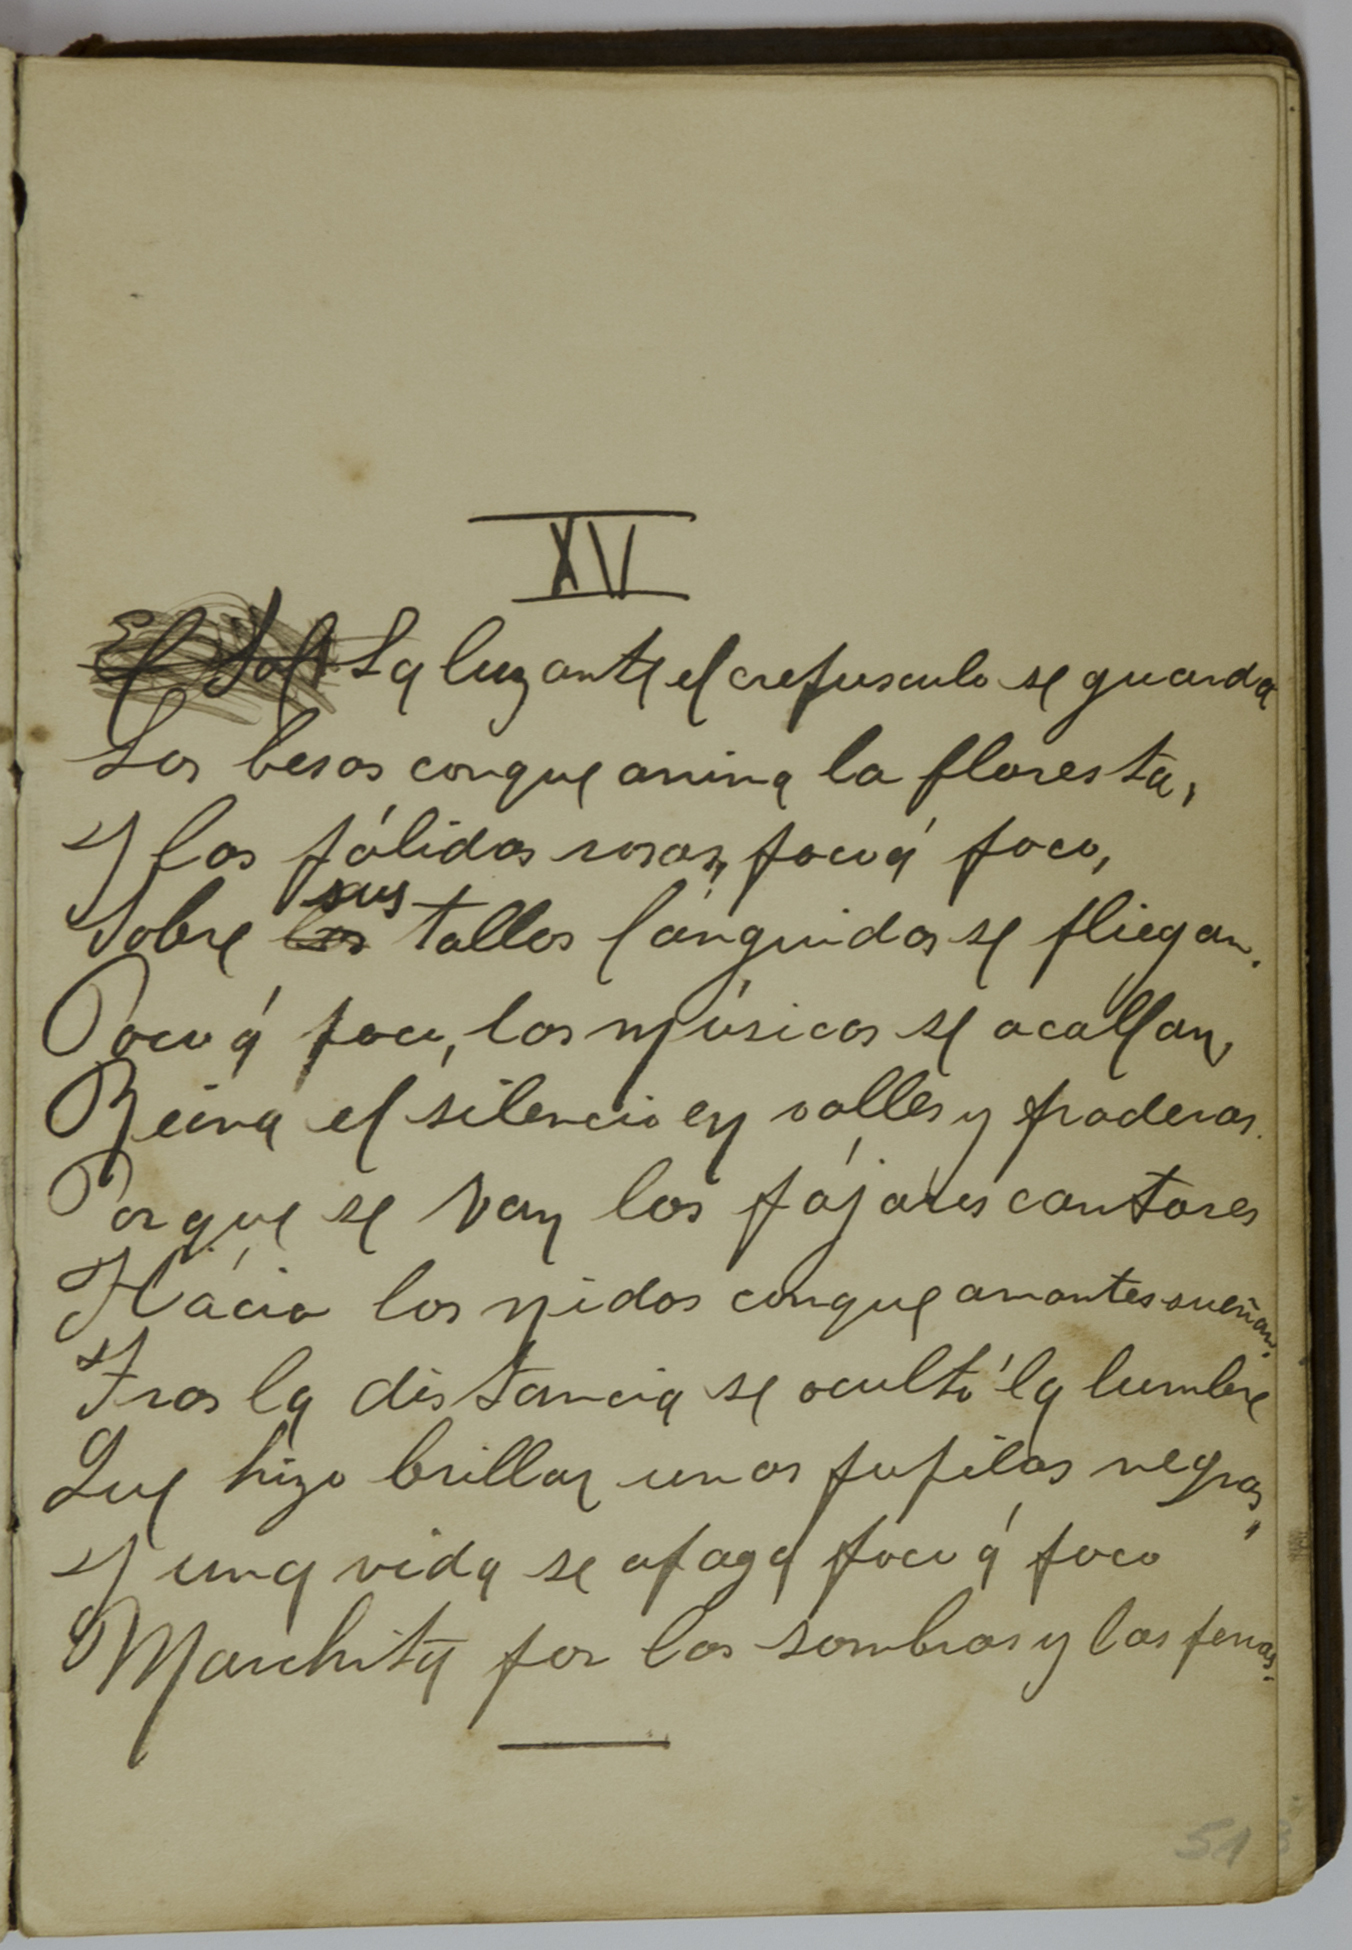 XV
El Sol La luz ante el crepusculo se guarda
Los besos conque anima la floresta,
Y las pálidas rosas, poco á poco,
Sobre los sus tallos lánguidos se pliegan.
Poco á poco, las músicas se acallan,
Reina el silencio en valles y praderas.
Porque se van los pájares cantores
Hácia los nidos conque amantes sueñan.
Tras la distancia se ocultó la lumbre
Que hizo brillar unas pupilas negras,
Y una vida se apaga poco á poco
Marchita por las sombras y las penas.
51